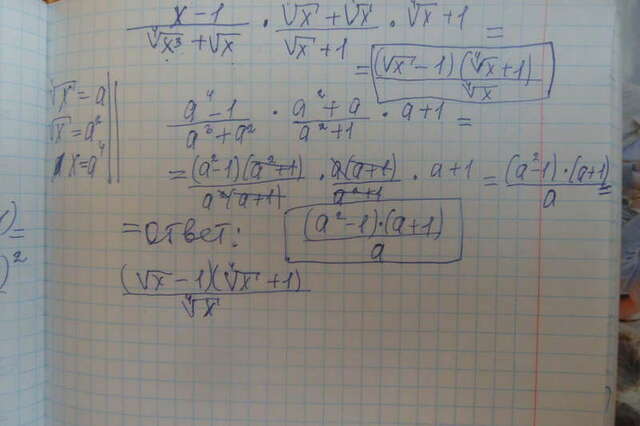 x-1/⁴√x³+√x · ⁴√x+√x/√x+1 · ⁴√x+1 =
= (√x-1)(⁴√x+1)/⁴√x
⁴√x=a
√x=a²
x=a⁴
a⁴-1/a³+a² · a²+a/a²+1 · a+1 =
= (a²-1)(a²+1)/a²(a+1) · a(a+1)/a²+1 · a+1 = (a²-1)·(a+1)/a =
= ответ: (a²-1)·(a+1)/a
(√x-1)(⁴√x+1)/⁴√x
)=
)²